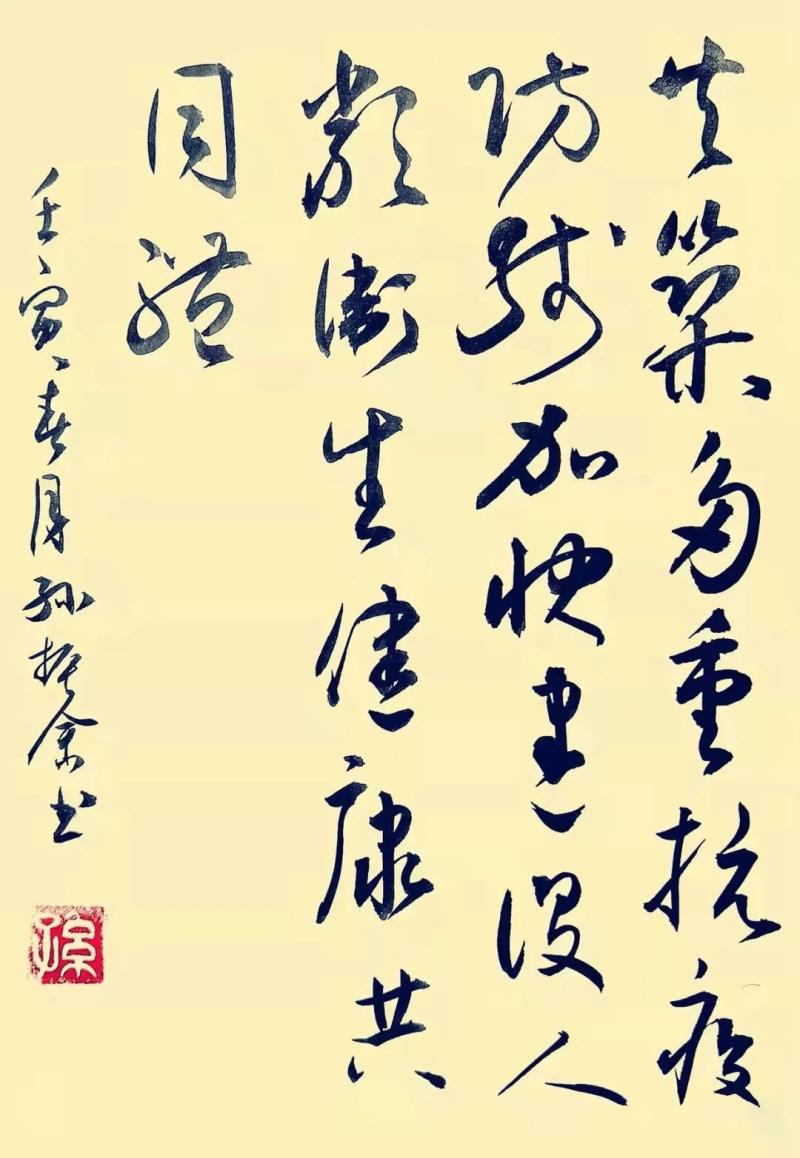 共築多重抗疫
防线加快建设人
类衛生健康共
同體
壬寅春月孙振余书
孫